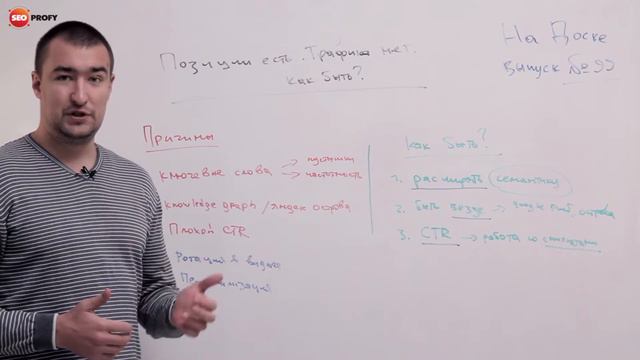 SEO PROFY
Позиции есть. Трафика нет.
как быть?
На Доске
выпуск №99
Причины
ключевые слова → пустышки
→ частотность
knowledge graph / яндекс острова
Плохой CTR
Ротация в выдаче
как быть?
1. расширять семантику
2. быть везде →
острова
3. CTR → работа со сниппетами